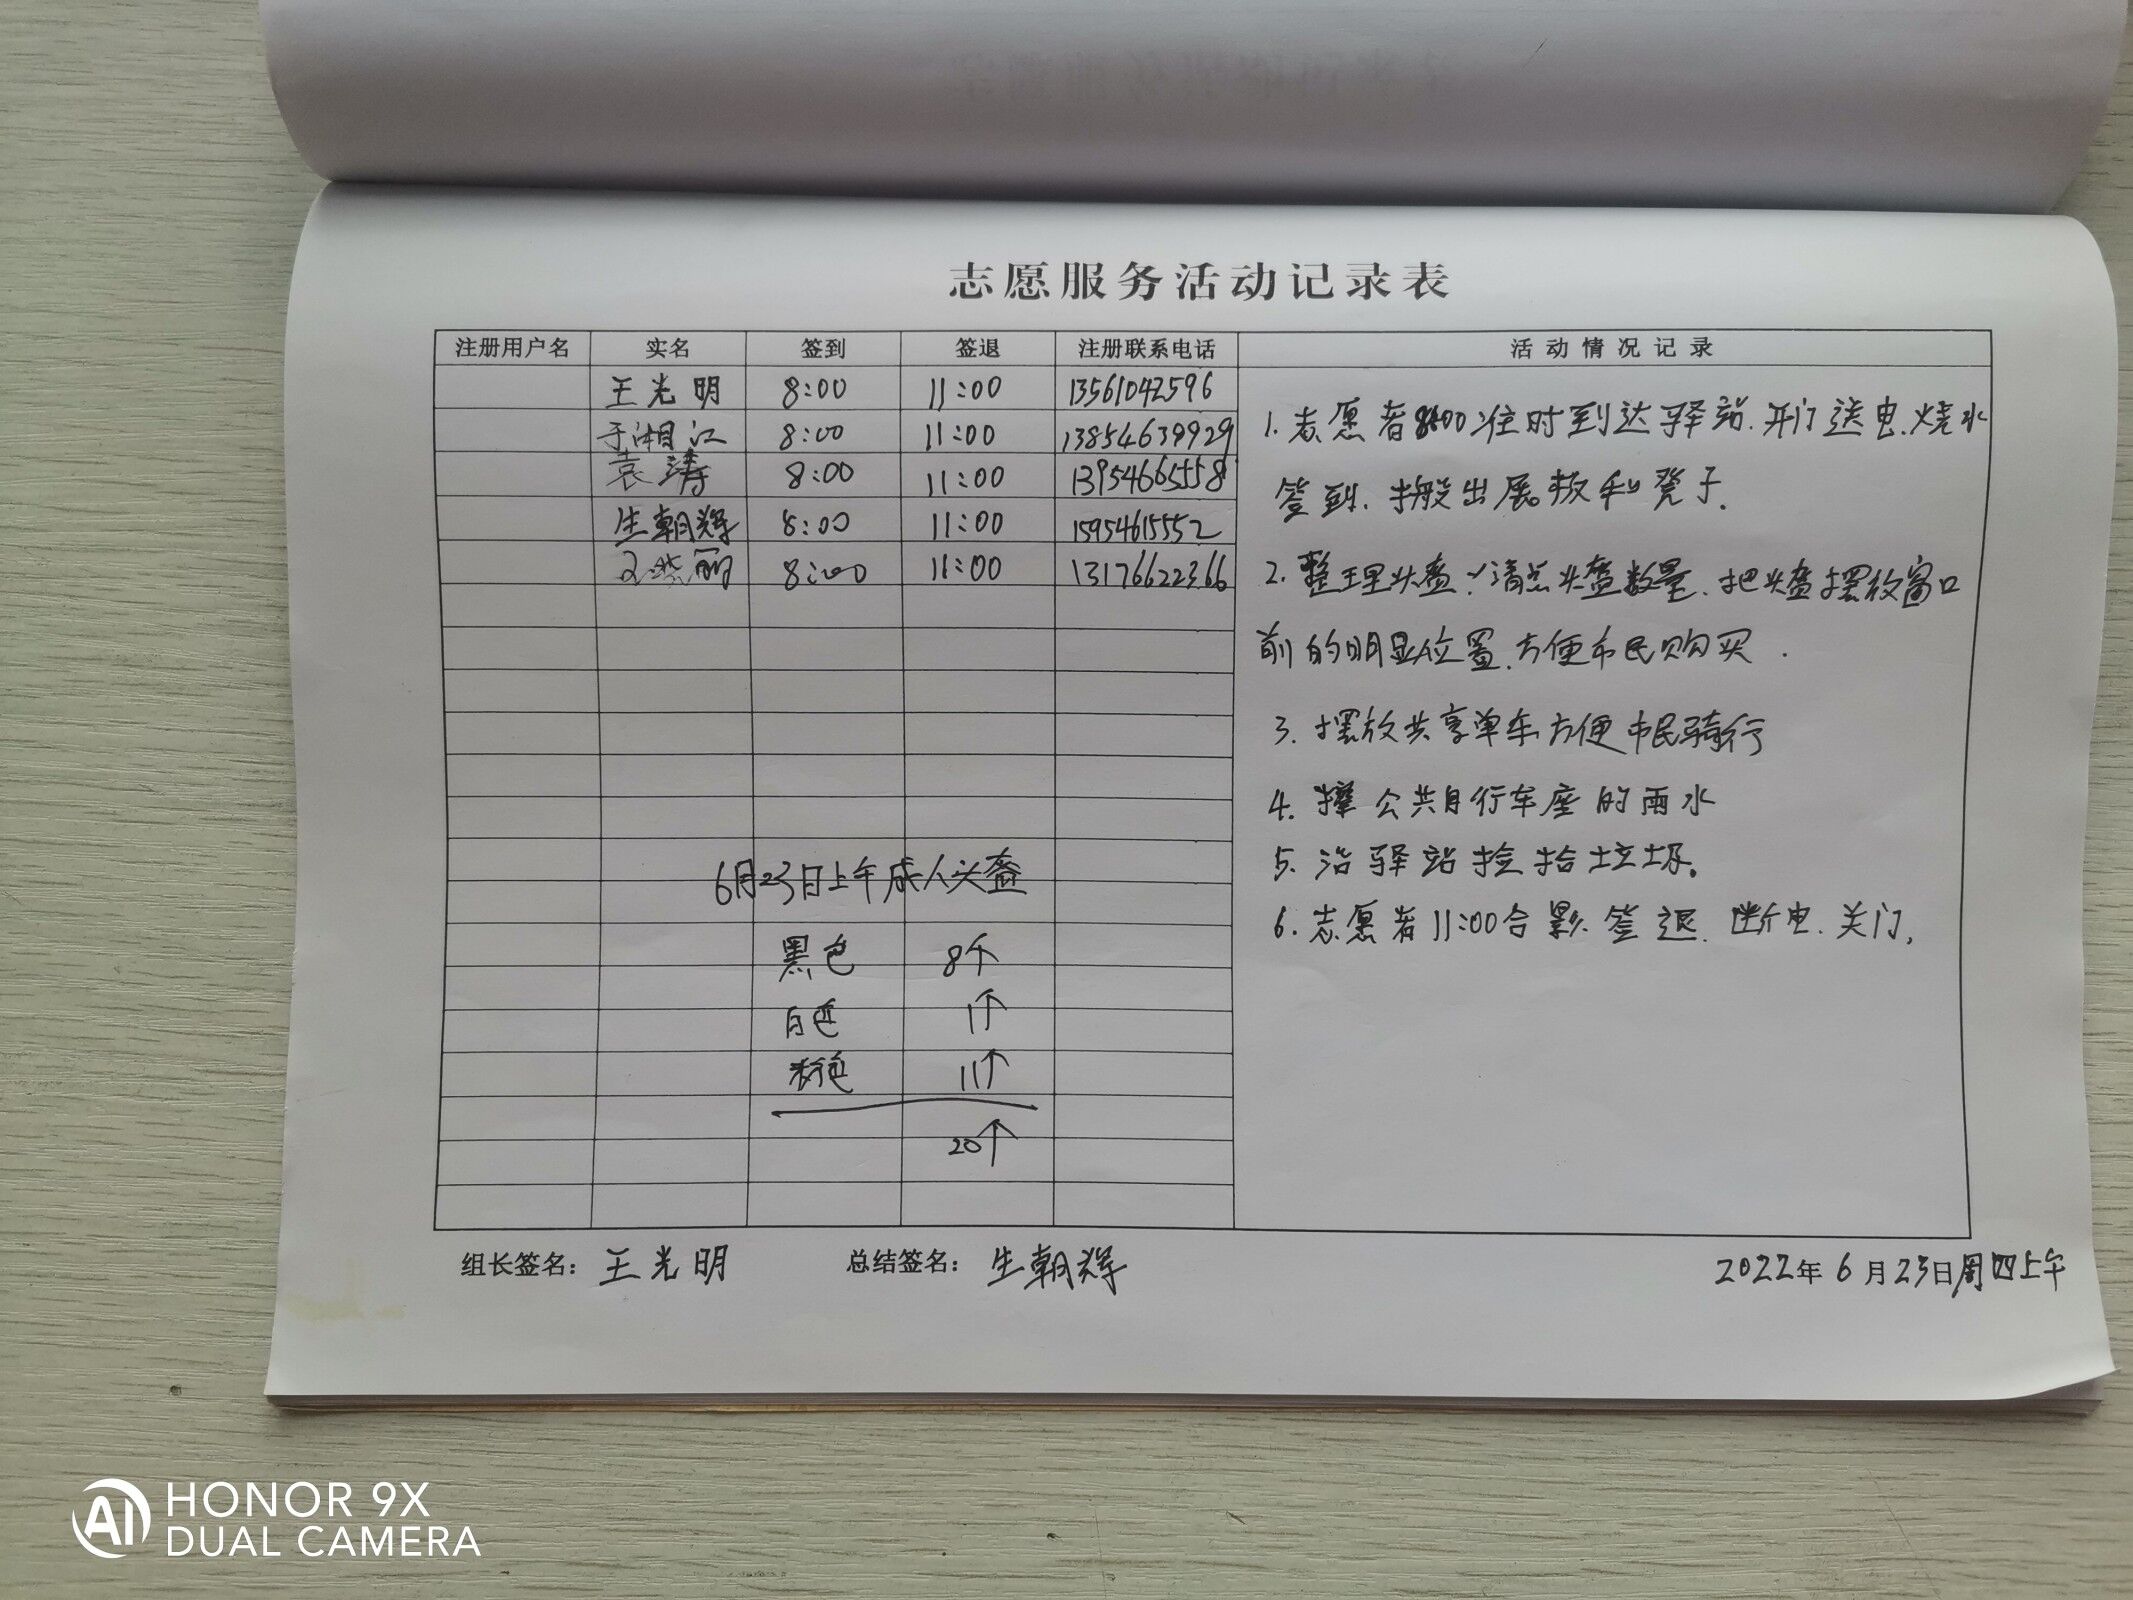 志愿服务活动记录表
注册用户名 实名 签到 签退 注册联系电话 活动情况记录
王光明 8:00 11:00 13561042596
于湘江 8:00 11:00 13854639929
袁涛 8:00 11:00 13954665558
生朝辉 8:00 11:00 15954615552
丽 8:00 11:00 13176622366
6月23日上午成人头盔
黑色 8个
白色 1个
粉色 11个
20个
1.志愿者8:00准时到达驿站.开门送电.烧水
签到.搬出展板和凳子.
2.整理头盔!清点头盔数量.把头盔摆放窗口
前的明显位置.方便市民购买.
3.摆放共享单车方便市民骑行
4.擦公共自行车座的雨水
5.沿驿站捡拾垃圾。
6.志愿者11:00合影.签退.断电.关门,
组长签名：王光明 总结签名：生朝辉 2022年6月23日周四上午
HONOR 9X
DUAL CAMERA
AI